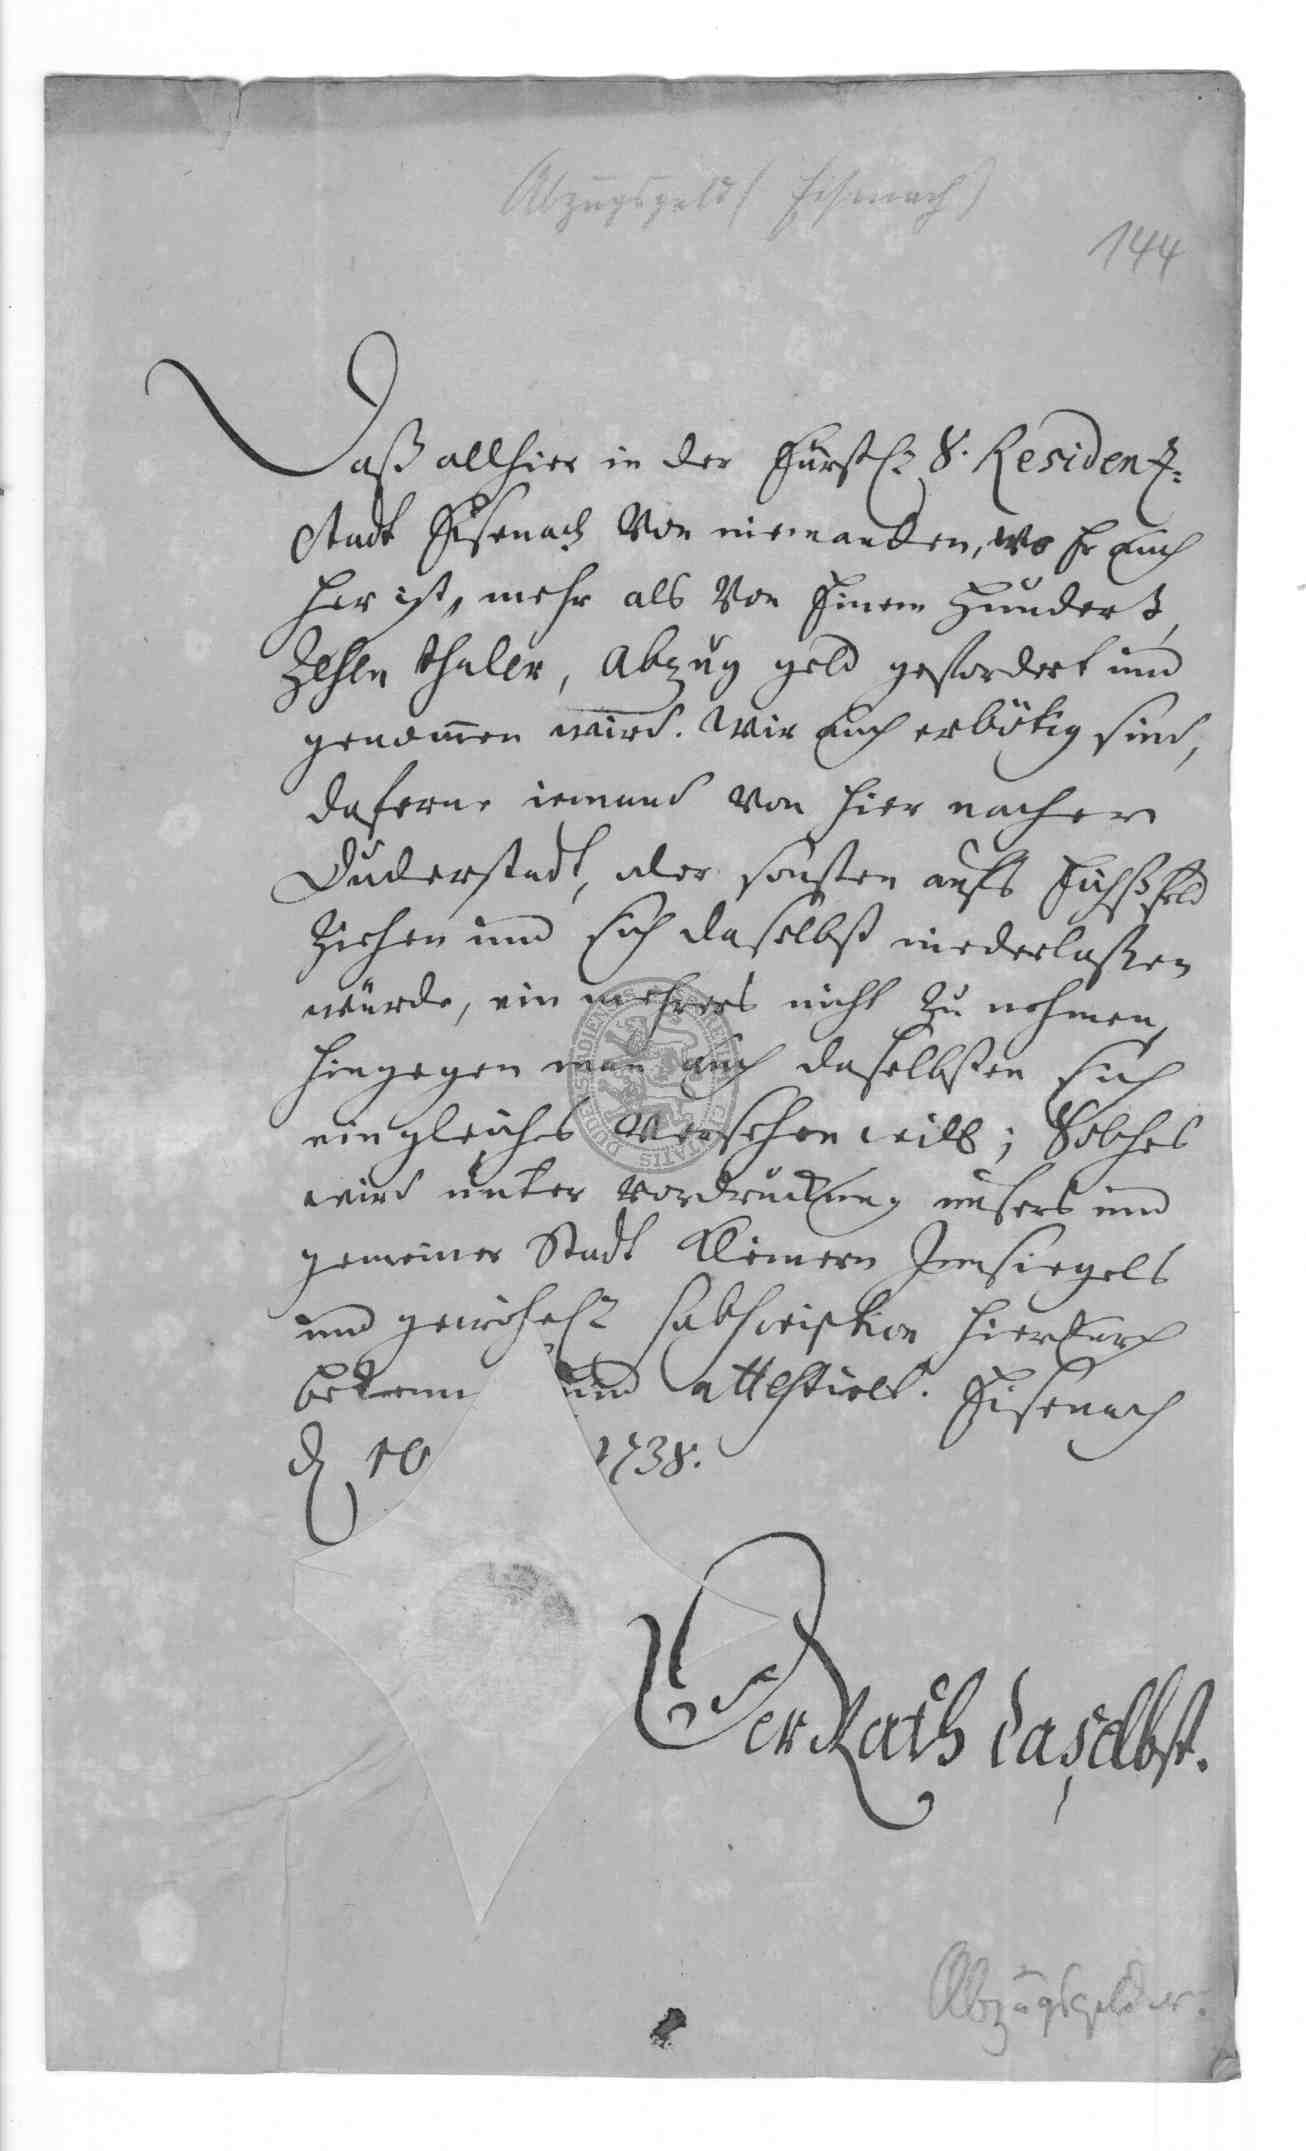 Abzugsgeld (Eisenach)
144
Daß allhier in der Fürstl. S. Residentz-
Stadt Eisenach Von niemanden, wo Er auch
her ist, mehr als Von Einem Hundert,
Zehen thaler, Abzug geld gefordert und
genom̄en wird. Wir auch erbötig sind,
daferne iemand von hier nacher
Duderstadt, oder sonsten aufs Eichßfeld
Ziehen und sich daselbst niederlaßen
würde, ein mehrers nicht zu nehmen,
hingegen man auch daselbsten sich
ein gleiches versehen will; Solches
wird unter Vordruckung unsers und
gemeiner Stadt kleinern Innsiegels
und gewöhnl. subscription hierdurch
bekenn und attestiret. Eisenach
d. 10 1738.
Der Rath daselbst.
Abzugsgelder.
SIGILLUM CIVITATIS DUDERSTADIENSIS